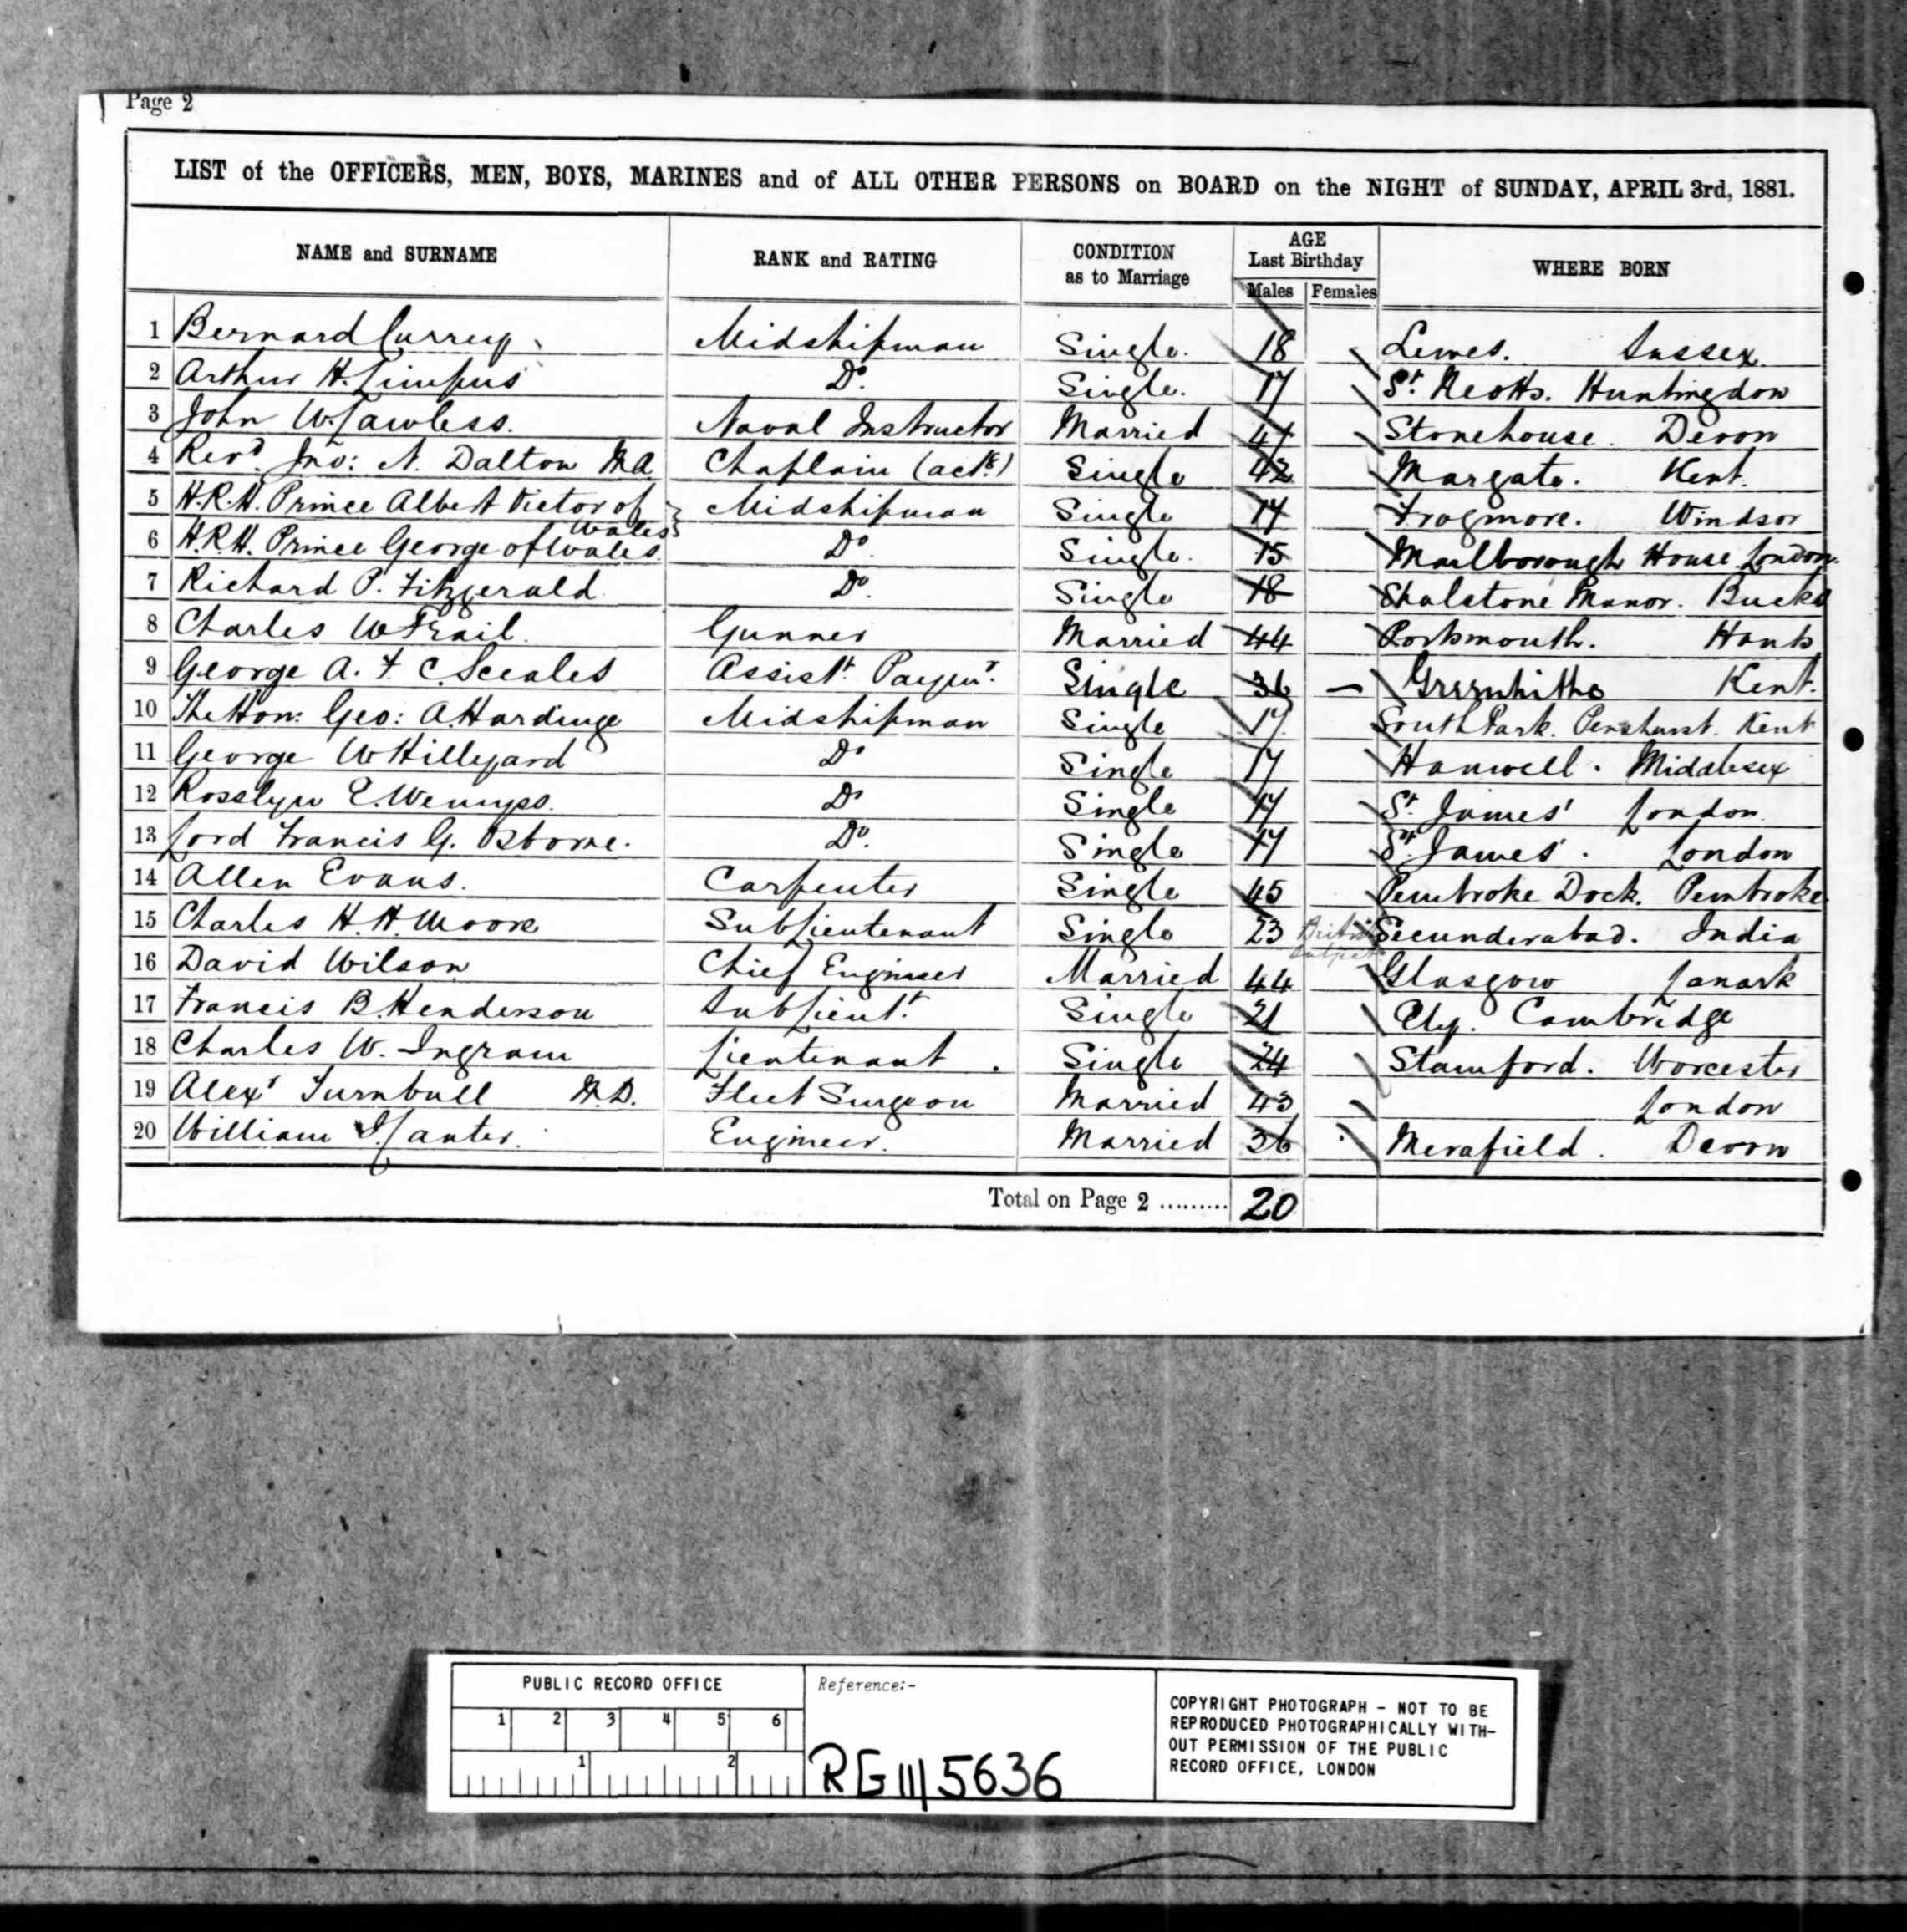 Page 2
LIST of the OFFICERS, MEN, BOYS, MARINES and of ALL OTHER PERSONS on BOARD on the NIGHT of SUNDAY, APRIL 3rd, 1881.
NAME and SURNAME RANK and RATING CONDITION as to Marriage AGE Last Birthday Males Females WHERE BORN
1 Bernard Currey Midshipman Single. 18 Lewes. Sussex.
2 Arthur H. Limpus Do. Single. 17 St. Neotts. Huntingdon
3 John W. Lawless. Naval Instructor Married 47 Stonehouse. Devon
4 Revd. Jno: N. Dalton MA Chaplain (actg.) Single 42 Margate. Kent.
5 H.R.H. Prince Albert Victor of Wales Midshipman Single 17 Frogmore. Windsor
6 H.R.H. Prince George of Wales. Do. Single. 15 Marlborough House London.
7 Richard P. Fitzgerald. Do. Single 18 Shalstone Manor. Bucks
8 Charles W Trail. Gunner Married 44 Portsmouth. Hants
9 George A. F C. Sceales Assist. Paymr. Single 36 — Greenhithe Kent.
10 The Hon: Geo: A. Hardinge Midshipman Single 17 South Park. Penshurst. Kent
11 George W Hillyard Do Single 17 Hanwell. Middlesex
12 Rosslyn E. Wemyss. Do Single 17 St. James' London.
13 Lord Francis G. Osborne. Do. Single 17 St. James'. London
14 Allen Evans. Carpenter Single 45 Pembroke Dock. Pembroke
15 Charles H. H. Moore Sub Lieutenant Single 23 British Subject Secunderabad. India
16 David Wilson Chief Engineer Married 44 Glasgow Lanark
17 Francis B. Henderson Sub Lieut. Single 21 Ely. Cambridge
18 Charles W. Ingram Lieutenant. Single 24 Stamford. Worcester
19 Alexr Turnbull M.D. Fleet Surgeon Married 43 London
20 William Canter. Engineer. Married 36 Merafield. Devon
Total on Page 2 ......... 20
PUBLIC RECORD OFFICE
1 2 3 4 5 6
1 2
Reference:-
RG 11/5636
COPYRIGHT PHOTOGRAPH - NOT TO BE
REPRODUCED PHOTOGRAPHICALLY WITH-
OUT PERMISSION OF THE PUBLIC
RECORD OFFICE, LONDON